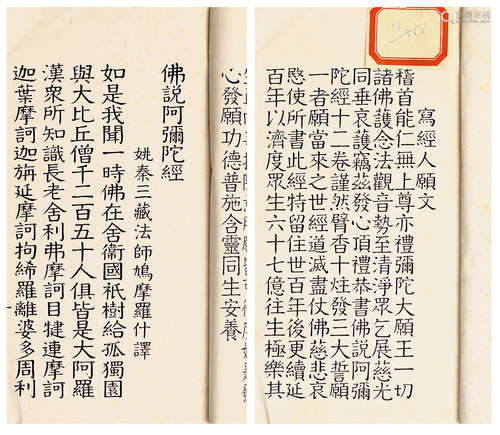 寫經人願文
稽首能仁無上尊亦禮彌陀大願王一切
諸佛護念法觀音勢至清淨眾乞展慈光
同垂哀護竊茲發心頂禮恭書佛説阿彌
陀經十二卷謹然臂香十炷發三大誓願
一者願當來之世經道滅盡仗佛慈悲哀
愍使所書此經特留住世百年後更續延
百年以濟度眾生六十七億往生極樂其
心發願功德普施含靈同生安養
佛説阿彌陀經
姚秦三藏法師鳩摩羅什譯
如是我聞一時佛在舍衞國祇樹給孤獨園
與大比丘僧千二百五十人俱皆是大阿羅
漢衆所知識長老舍利弗摩訶目犍連摩訶
迦葉摩訶迦旃延摩訶拘絺羅離婆多周利